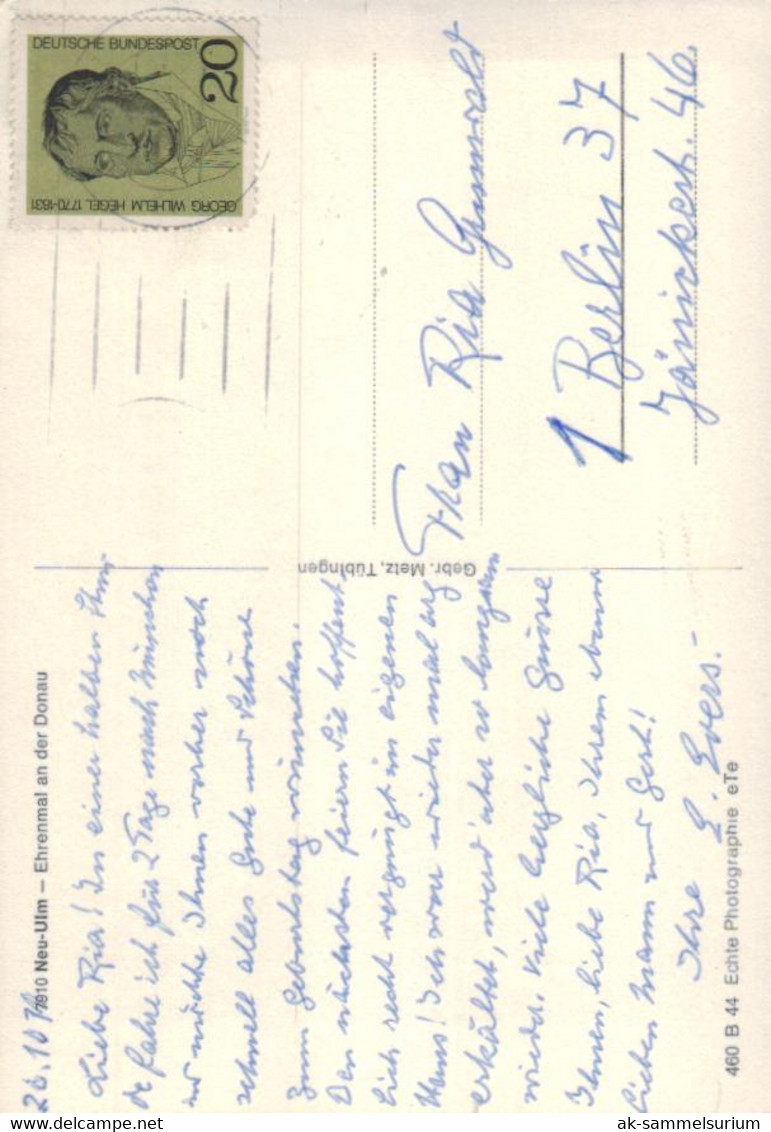 7910 Neu-Ulm – Ehrenmal an der Donau
26.10.70
Liebe Ria! In einer halben Stun-
de fahre ich für 2 Tage nach München
und möchte Ihnen vorher noch
schnell alles Gute und Schöne
zum Geburtstag wünschen.
Den nächsten feiern Sie hoffent-
lich recht vergnügt im eigenen
Haus! Ich war wieder mal arg
erkältet, wird aber so langsam
wieder. Viele herzliche Grüße
Ihnen, liebe Ria, Ihrem
lieben Mann und Gert!
Ihre E. Evers.-
460 B 44 Echte Photographie eTe
Gebr. Metz, Tübingen
DEUTSCHE BUNDESPOST
20
GEORG WILHELM HEGEL 1770-1831
Frau Ria Grunwald
1 Berlin 37
Jänickestr. 46.
ak-sammelsurium